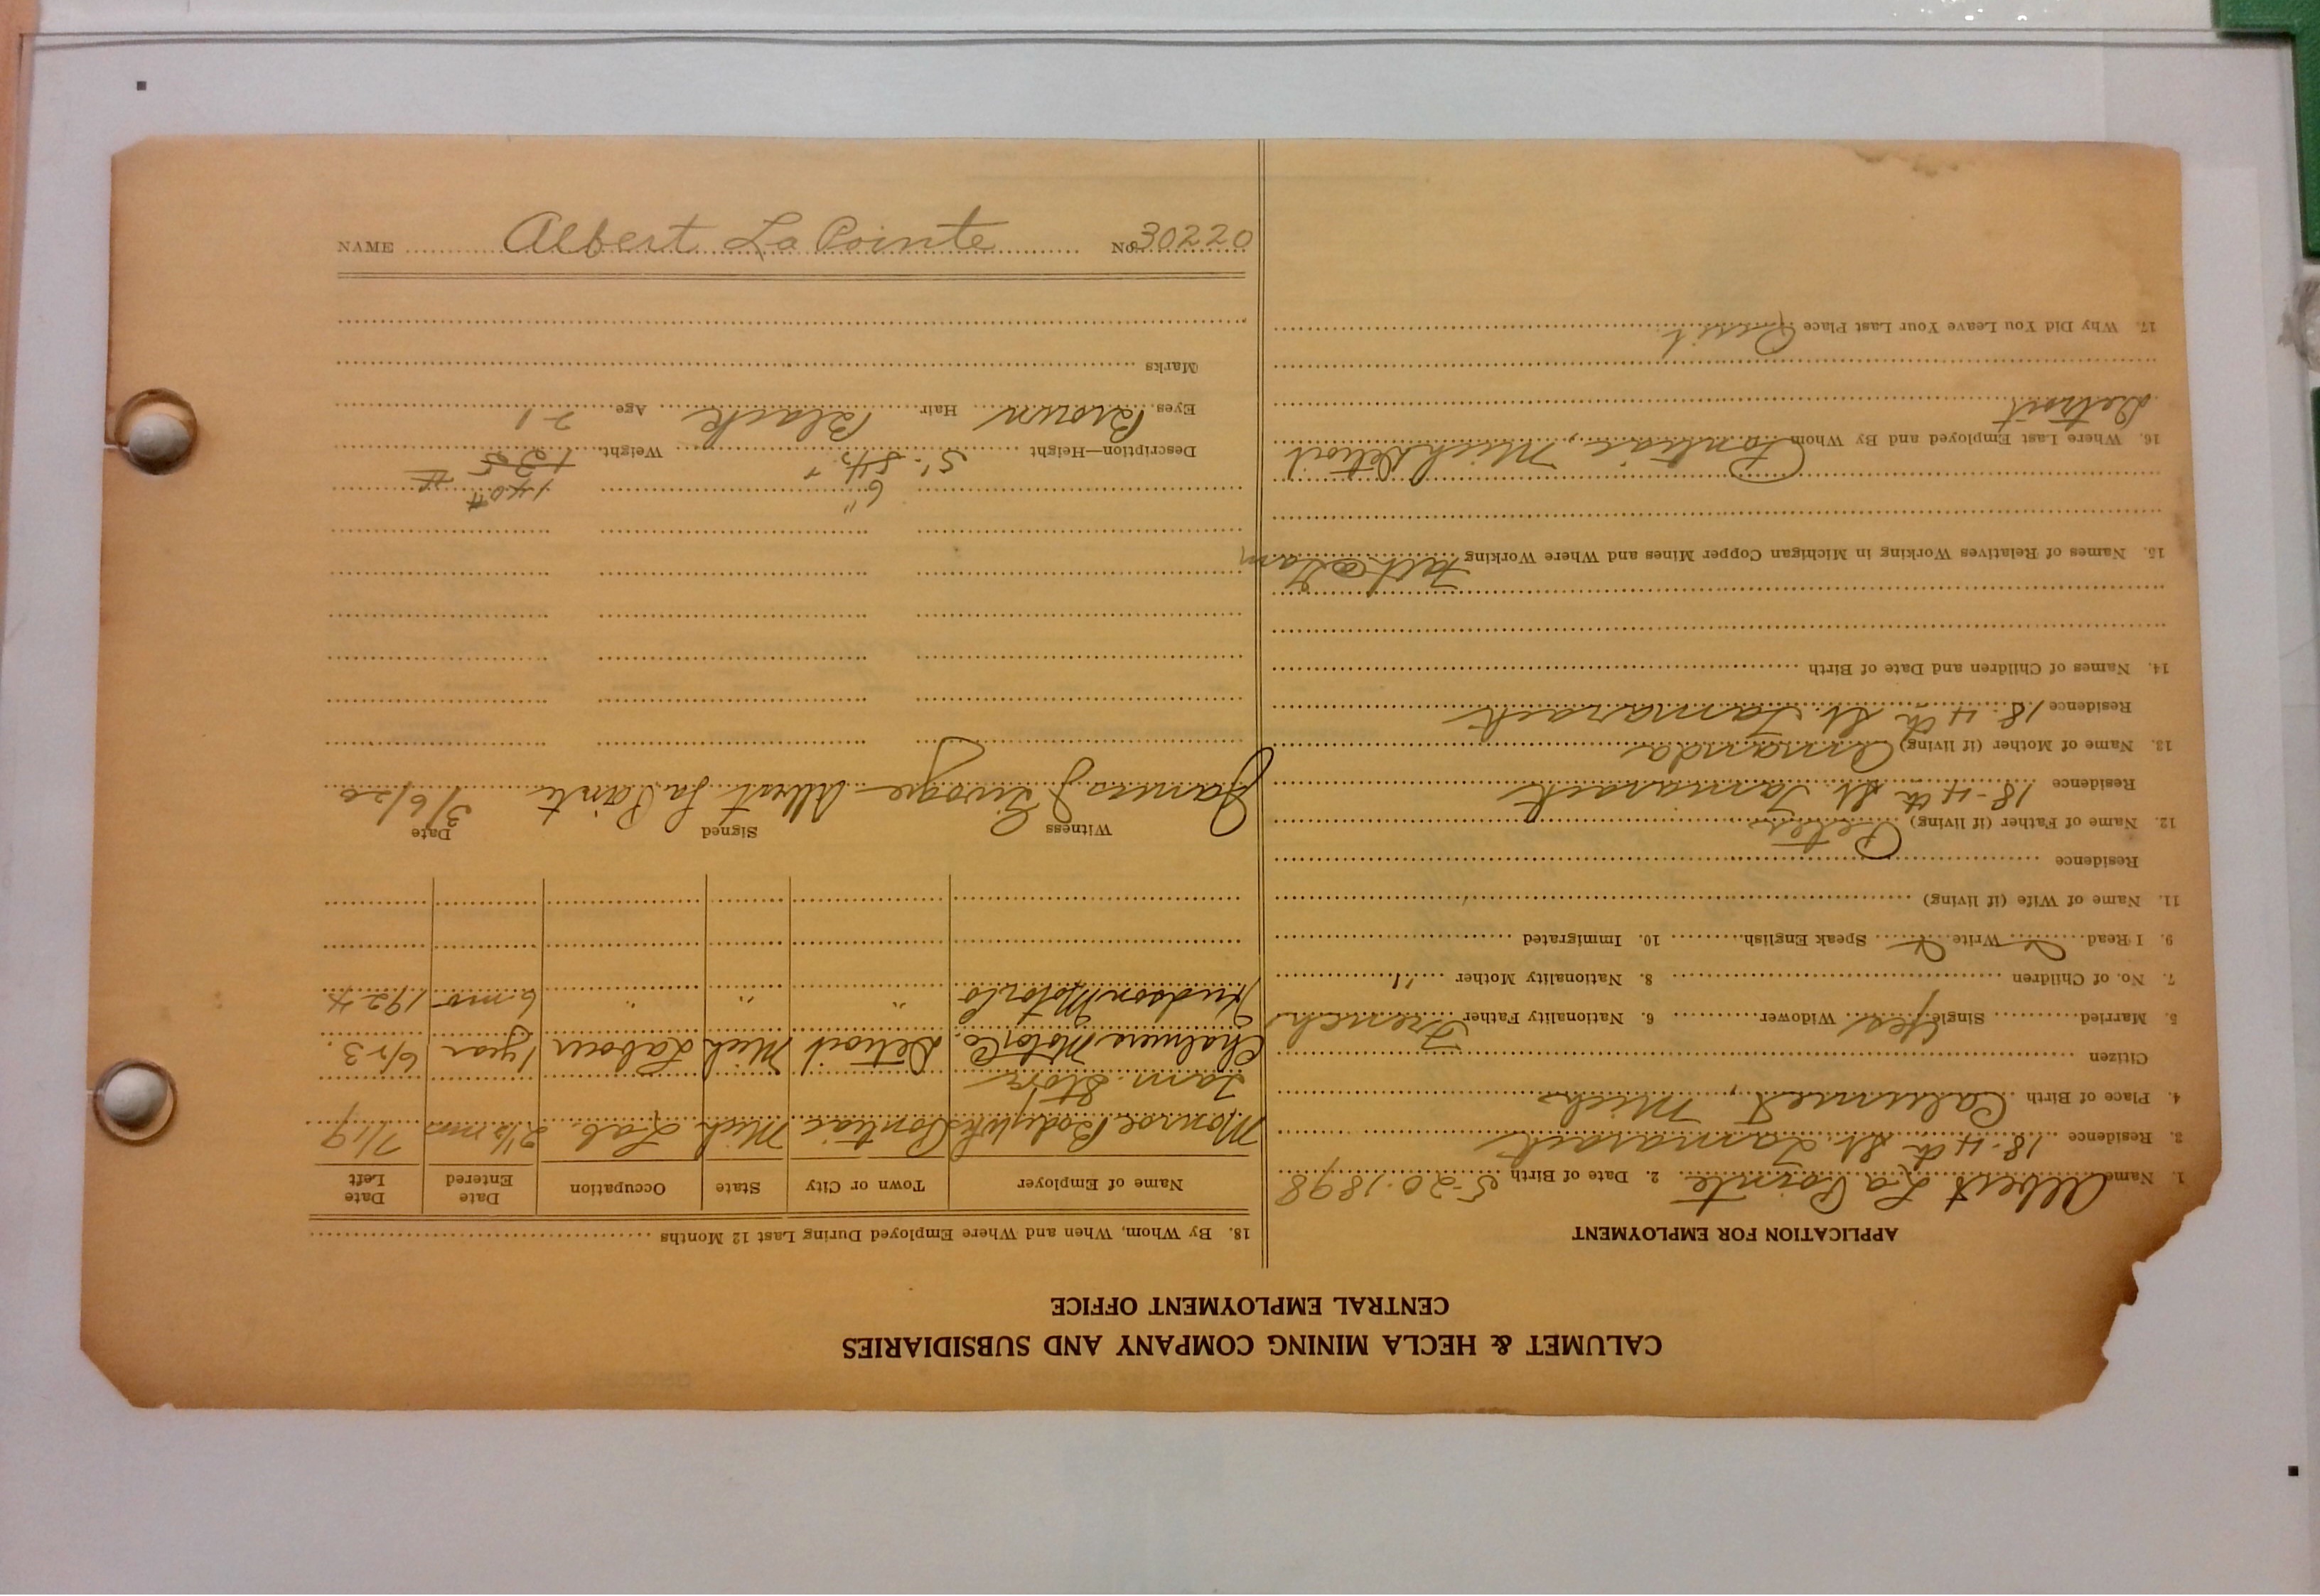 CALUMET & HECLA MINING COMPANY AND SUBSIDIARIES
CENTRAL EMPLOYMENT OFFICE
APPLICATION FOR EMPLOYMENT
1. Name Albert La Pointe 2. Date of Birth 5-20-1898
3. Residence 18-4th St. Tamarack
4. Place of Birth Calumet, Mich
Citizen
5. Married Single Yes Widower 6. Nationality Father French
7. No. of Children 8. Nationality Mother "
9. I Read Write Speak English 10. Immigrated
11. Name of Wife (if living)
Residence
12. Name of Father (if living) Peter
Residence 18-4th St. Tamarack
13. Name of Mother (if living) Amanda
Residence 18-4th St. Tamarack
14. Names of Children and Date of Birth
15. Names of Relatives Working in Michigan Copper Mines and Where Working
16. Where Last Employed and By Whom Pontiac, Mich Detroit
Detroit
17. Why Did You Leave Your Last Place Quit
18. By Whom, When and Where Employed During Last 12 Months
Name of Employer Town or City State Occupation Date Entered Date Left
Monroe Body Wks Pontiac Mich Lab. 2½ mos 7/19
Tam. Store
Chalmers Motor Co. Detroit Mich Labour 1 year 6/23.
Hudson Motor Co " " " 6 mo 1924
Witness Signed Date
James J Albert La Pointe 3/6/20
6" 140#
Description—Height 5' 5½" Weight 135#
Eyes Brown Hair Black Age 21
Marks
NAME Albert La Pointe NO 30220